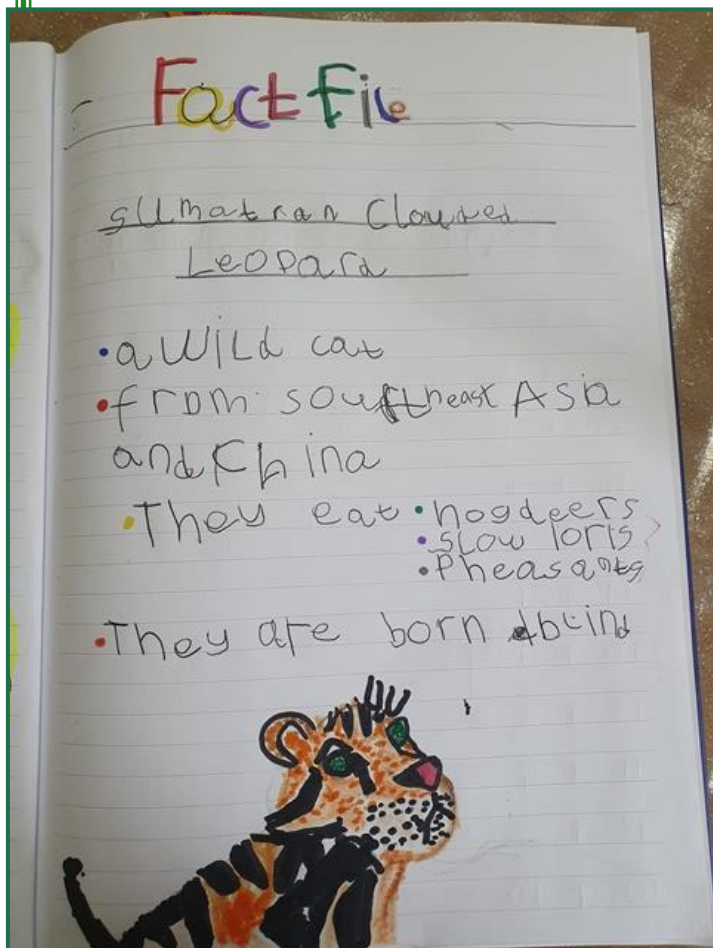 Fact File
sumatran Clouded
Leopard
• a wild cat
• from southeast Asia
and China
• They eat • hogdeers
• slow loris
• Pheasants
• They are born blind